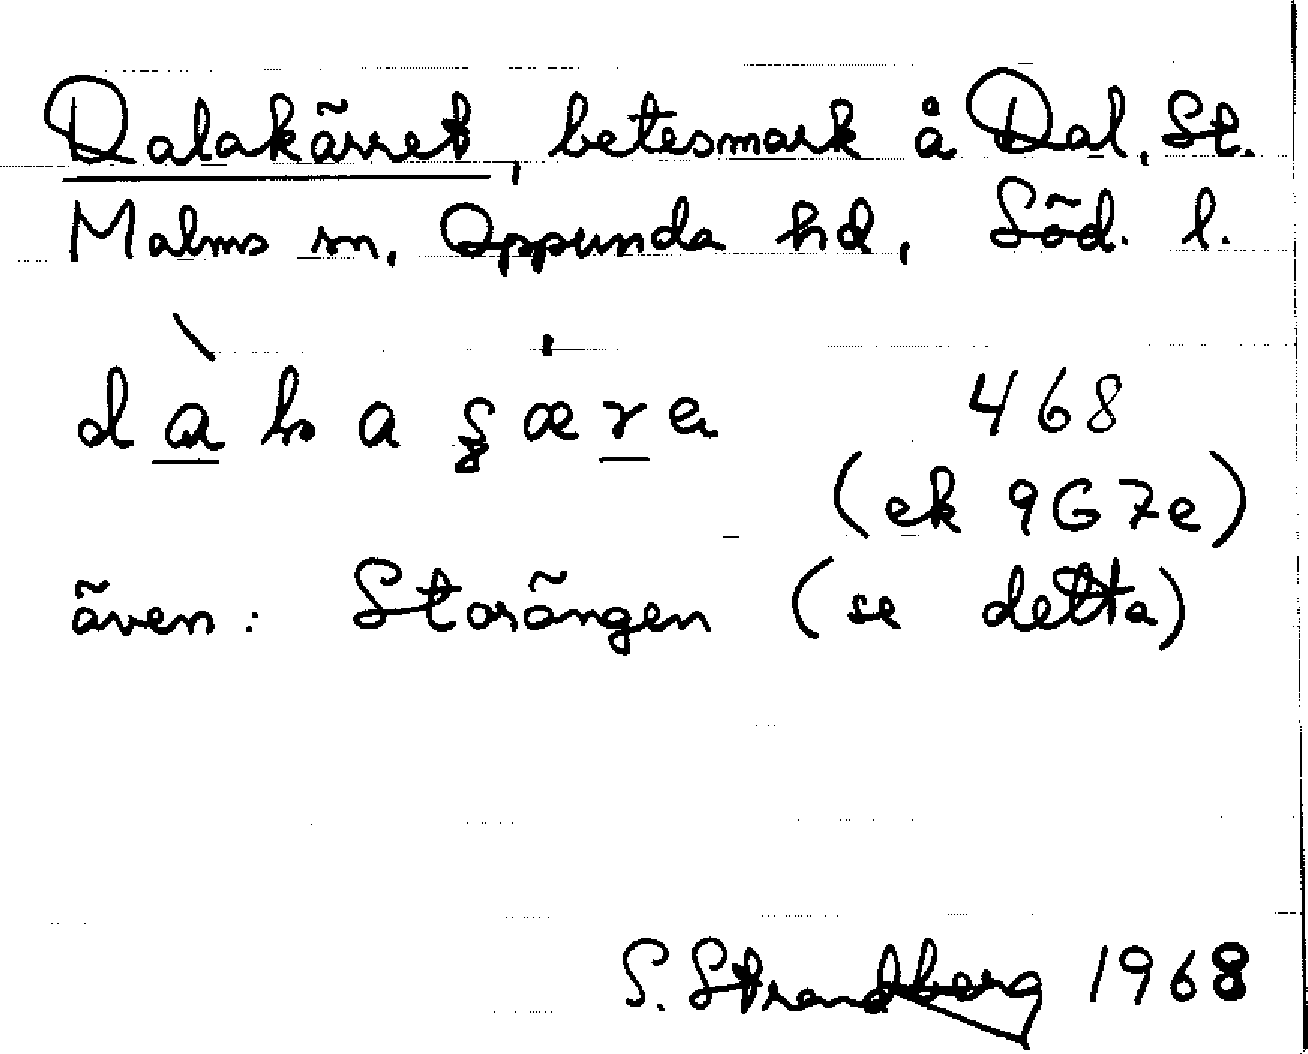 Dalakärret, betesmark å Dal, St.
Malms sn, Oppunda hd, Söd. l.
468
(ek 9G7e)
även: Storängen (se detta)
S. Strandberg 1968